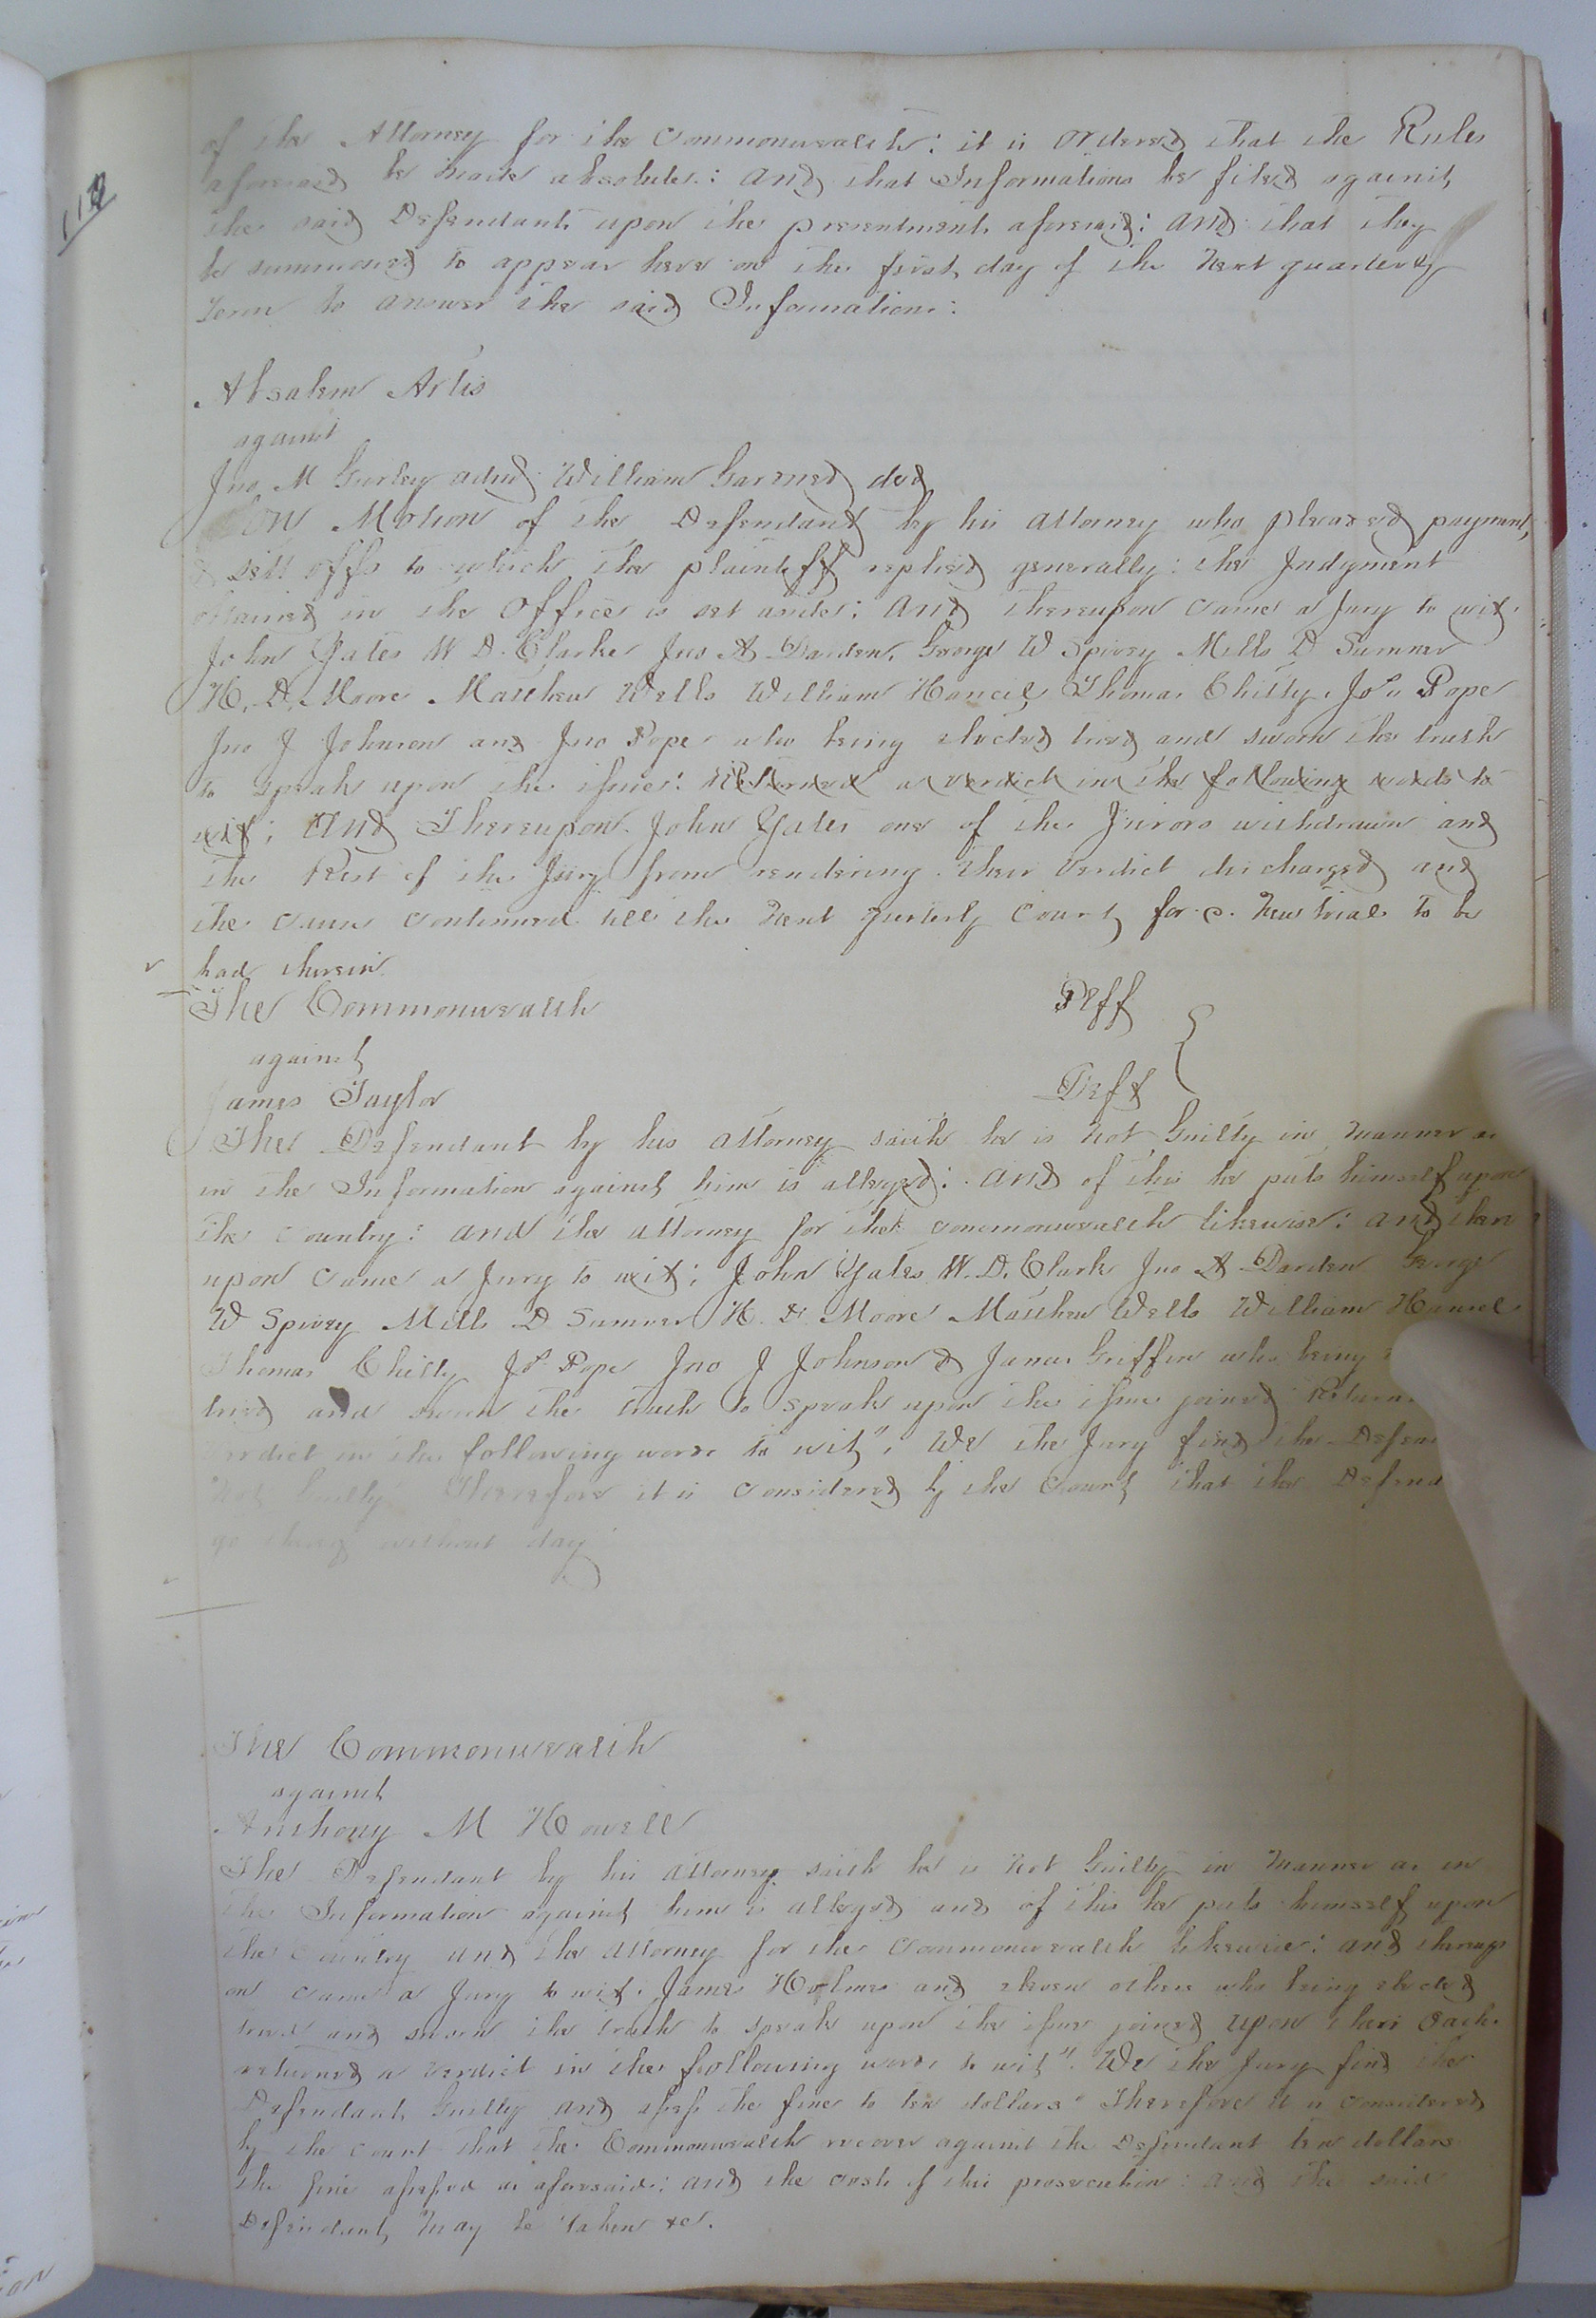 112
of the Attorney for the Commonwealth: it is Ordered that the Rules
aforesaid be made absolute: and that Informations be filed against
the said Defendants upon the presentments aforesaid: and that they
be summoned to appear here on the first day of the Next quarterly
Term to answer the said Informations:
Absalem Artis
against
Jno M Gurley admr William Garened decd
On Motion of the Defendant by his attorney who pleaded payment,
& sett offs to which the plaintiff replied generally: the Judgment
obtained in the Office is set aside: and thereupon came a Jury to wit:
John Yates W D. Clarke Jno A Darden, George W Spivey Mills D Sumner
H. D. Moore Matthew Wells William Hancil Thomas Chitty, Jos Pope
Jno J Johnson and Jno Pope who being elected tried and sworn the truth
to speak upon the issue: Returned a verdict in the following words to
wit; and Thereupon John Yates one of the Jurors withdrawn and
the Rest of the Jury from rendering their verdict discharged and
the cause continued till the Next Quarterly Court, for a New trial to be
had therein
The Commonwealth Plff
against
James Taylor Deft
The Defendant by his attorney saith he is Not Guilty in manner as
in the Information against him is alleged: and of this he puts himself upon
the country: and the attorney for the commonwealth likewise: and there
upon came a Jury to wit; John Yates W. D. Clark Jno A Darden George
W Spivey Mills D Sumner H. D. Moore Matthew Wells William Hancil
Thomas Chitty Jos Pope Jno J Johnson & James Griffin who being
tried and sworn the truth to speak upon the issue joined Return
verdict in the following words to wit", We the Jury find the Defen
Not Guilty" Therefore it is considered by the Court, that the Defend
go thereof without day
The Commonwealth
against
Anthony M Howell
The Defendant by his attorney saith he is Not Guilty in manner as in
the Information against him is alleged and of this he puts himself upon
the Country and the attorney for the Commonwealth likewise: and thereup
on came a Jury to wit. James Holmes and eleven others who being elected
tried and sworn the truth to speak upon the issue joined upon their Oath
returned a verdict in the following words to wit". We the Jury find the
Defendant, Guilty and assess the fine to ten dollars" Therefore it is considered
by the court that the Commonwealth recover against the Defendant ten dollars
the fine assessed as aforesaid: and the costs of this prosecution: and the said
Defendant, May be taken &c.